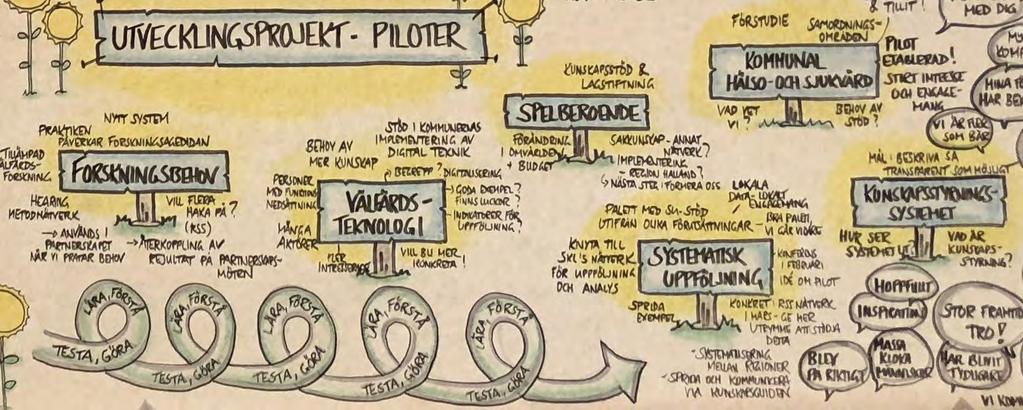 UTVECKLINGSPROJEKT - PILOTER
NYTT SYSTEM
PRAKTIKEN
PÅVERKAR FORSKNINGSAGENDAN
TILLÄMPAD
VÄLFÄRDS-
FORSKNING
FORSKNINGSBEHOV
HEARING
METODNÄTVERK
VILL FLERA
HAKA PÅ?
(RSS)
→ ANVÄNDS I
PARTNERSKAPET
NÄR VI PRATAR BEHOV
→ ÅTERKOPPLING AV
RESULTAT PÅ PARTNERSKAPS-
MÖTEN
BEHOV AV
MER KUNSKAP
STÖD I KOMMUNERNAS
IMPLEMENTERING AV
DIGITAL TEKNIK
BEGREPP? DIGITALISERING
PERSONER
MED FUNKTIONS
NEDSÄTTNING
VÄLFÄRDS-
TEKNOLOGI
- GODA EXEMPEL?
FINNS LUCKOR?
- INDIKATORER FÖR
UPPFÖLJNING?
MÅNGA
AKTÖRER
FLER
INTRESSERADE
VILL BLI MER
KONKRETA!
KUNSKAPSSTÖD &
LAGSTIFTNING
SPELBEROENDE
FÖRÄNDRING
I OMVÄRLDEN
+ BUDGET
SAKKUNSKAP - ANNAT
NÄTVERK?
- IMPLEMENTERING
- REGION HALLAND?
↳ NÄSTA STEG: FORMERA OSS
FÖRSTUDIE
SAMORDNINGS-
OMRÅDEN
KOMMUNAL
HÄLSO- OCH SJUKVÅRD
PILOT
ETABLERAD!
STORT INTRESSE
OCH ENGAGE-
MANG
VAD VET
VI?
BEHOV AV
STÖD?
& TILLIT!
MED DIG
MINA
HAR
VI ÄR FLER
SOM BÄR
LOKALA
DATA - LOKALT
ENGAGEMANG
PALETT MED SU-STÖD
UTIFRÅN OLIKA FÖRUTSÄTTNINGAR
- BRA PALETT,
VI GÅR VIDARE
KNYTA TILL
SKL'S NÄTVERK
FÖR UPPFÖLJNING
OCH ANALYS
SYSTEMATISK
UPPFÖLJNING
- KONFERENS
I FEBRUARI
IDÉ OM PILOT
SPRIDA
EXEMPEL
KONKRET: RSS NÄTVERK
I MARS - GE MER
UTRYMME ATT STÖDJA
DETTA
- SYSTEMATISERING
MELLAN REGIONER
- SPRIDA OCH KOMMUNICERA
VIA KUNSKAPSGUIDEN
MÅL: BESKRIVA SÅ
TRANSPARENT SOM MÖJLIGT
KUNSKAPSSTYRNINGS-
SYSTEMET
HUR SER
SYSTEMET UT?
VAD ÄR
KUNSKAPS-
STYRNING?
HOPPFULLT
INSPIRATION
STOR FRAMTIDS
TRO!
BLEV
PÅ RIKTIGT
MASSA
KLOKA
MÄNNISKOR
HAR BLIVIT
TYDLIGARE
VI
LÄRA, FÖRSTÅ
LÄRA, FÖRSTÅ
LÄRA, FÖRSTÅ
LÄRA, FÖRSTÅ
LÄRA, FÖRSTÅ
TESTA, GÖRA
TESTA, GÖRA
TESTA, GÖRA
TESTA, GÖRA
TESTA, GÖRA